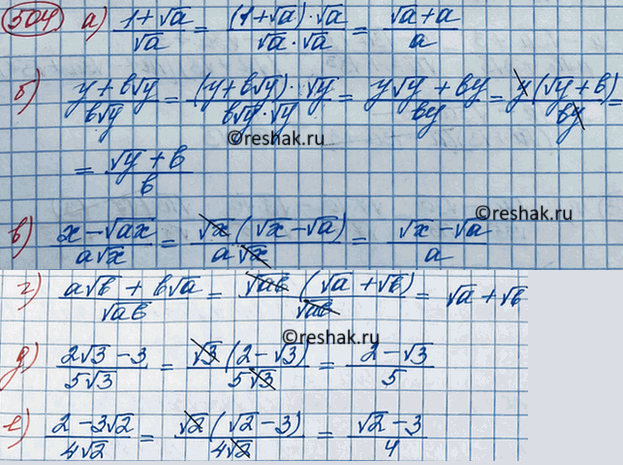 504 а) (1+√a)/√a = ((1+√a)·√a)/(√a·√a) = (√a+a)/a
б) (y+b√y)/(b√y) = ((y+b√y)·√y)/(b√y·√y) = (y√y+by)/(by) = (y(√y+b))/(by) =
©reshak.ru
= (√y+b)/b
©reshak.ru
в) (x-√ax)/(a√x) = (√x(√x-√a))/(a√x) = (√x-√a)/a
г) (a√b+b√a)/√ab = (√ab(√a+√b))/√ab = √a+√b
©reshak.ru
д) (2√3-3)/(5√3) = (√3(2-√3))/(5√3) = (2-√3)/5
е) (2-3√2)/(4√2) = (√2(√2-3))/(4√2) = (√2-3)/4